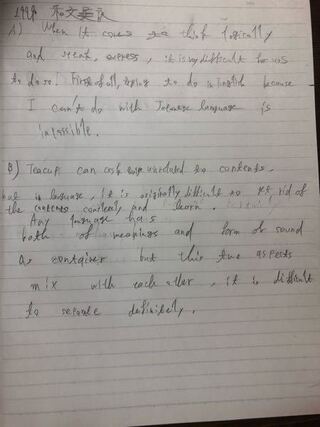 1998 和文英訳
A) When it comes to think logically
and speak, express, it is very difficult for us
to do so! First of all, trying to do in English because
I can't do with Japanese language is
impossible.
B) Teacup can wash unrelated to contents.
but in language, it is originally difficult to get rid of
the contents and learn
Any language has
both of meanings and form or sound
as container but this two aspects
mix with each other, it is difficult
to separate definitely.